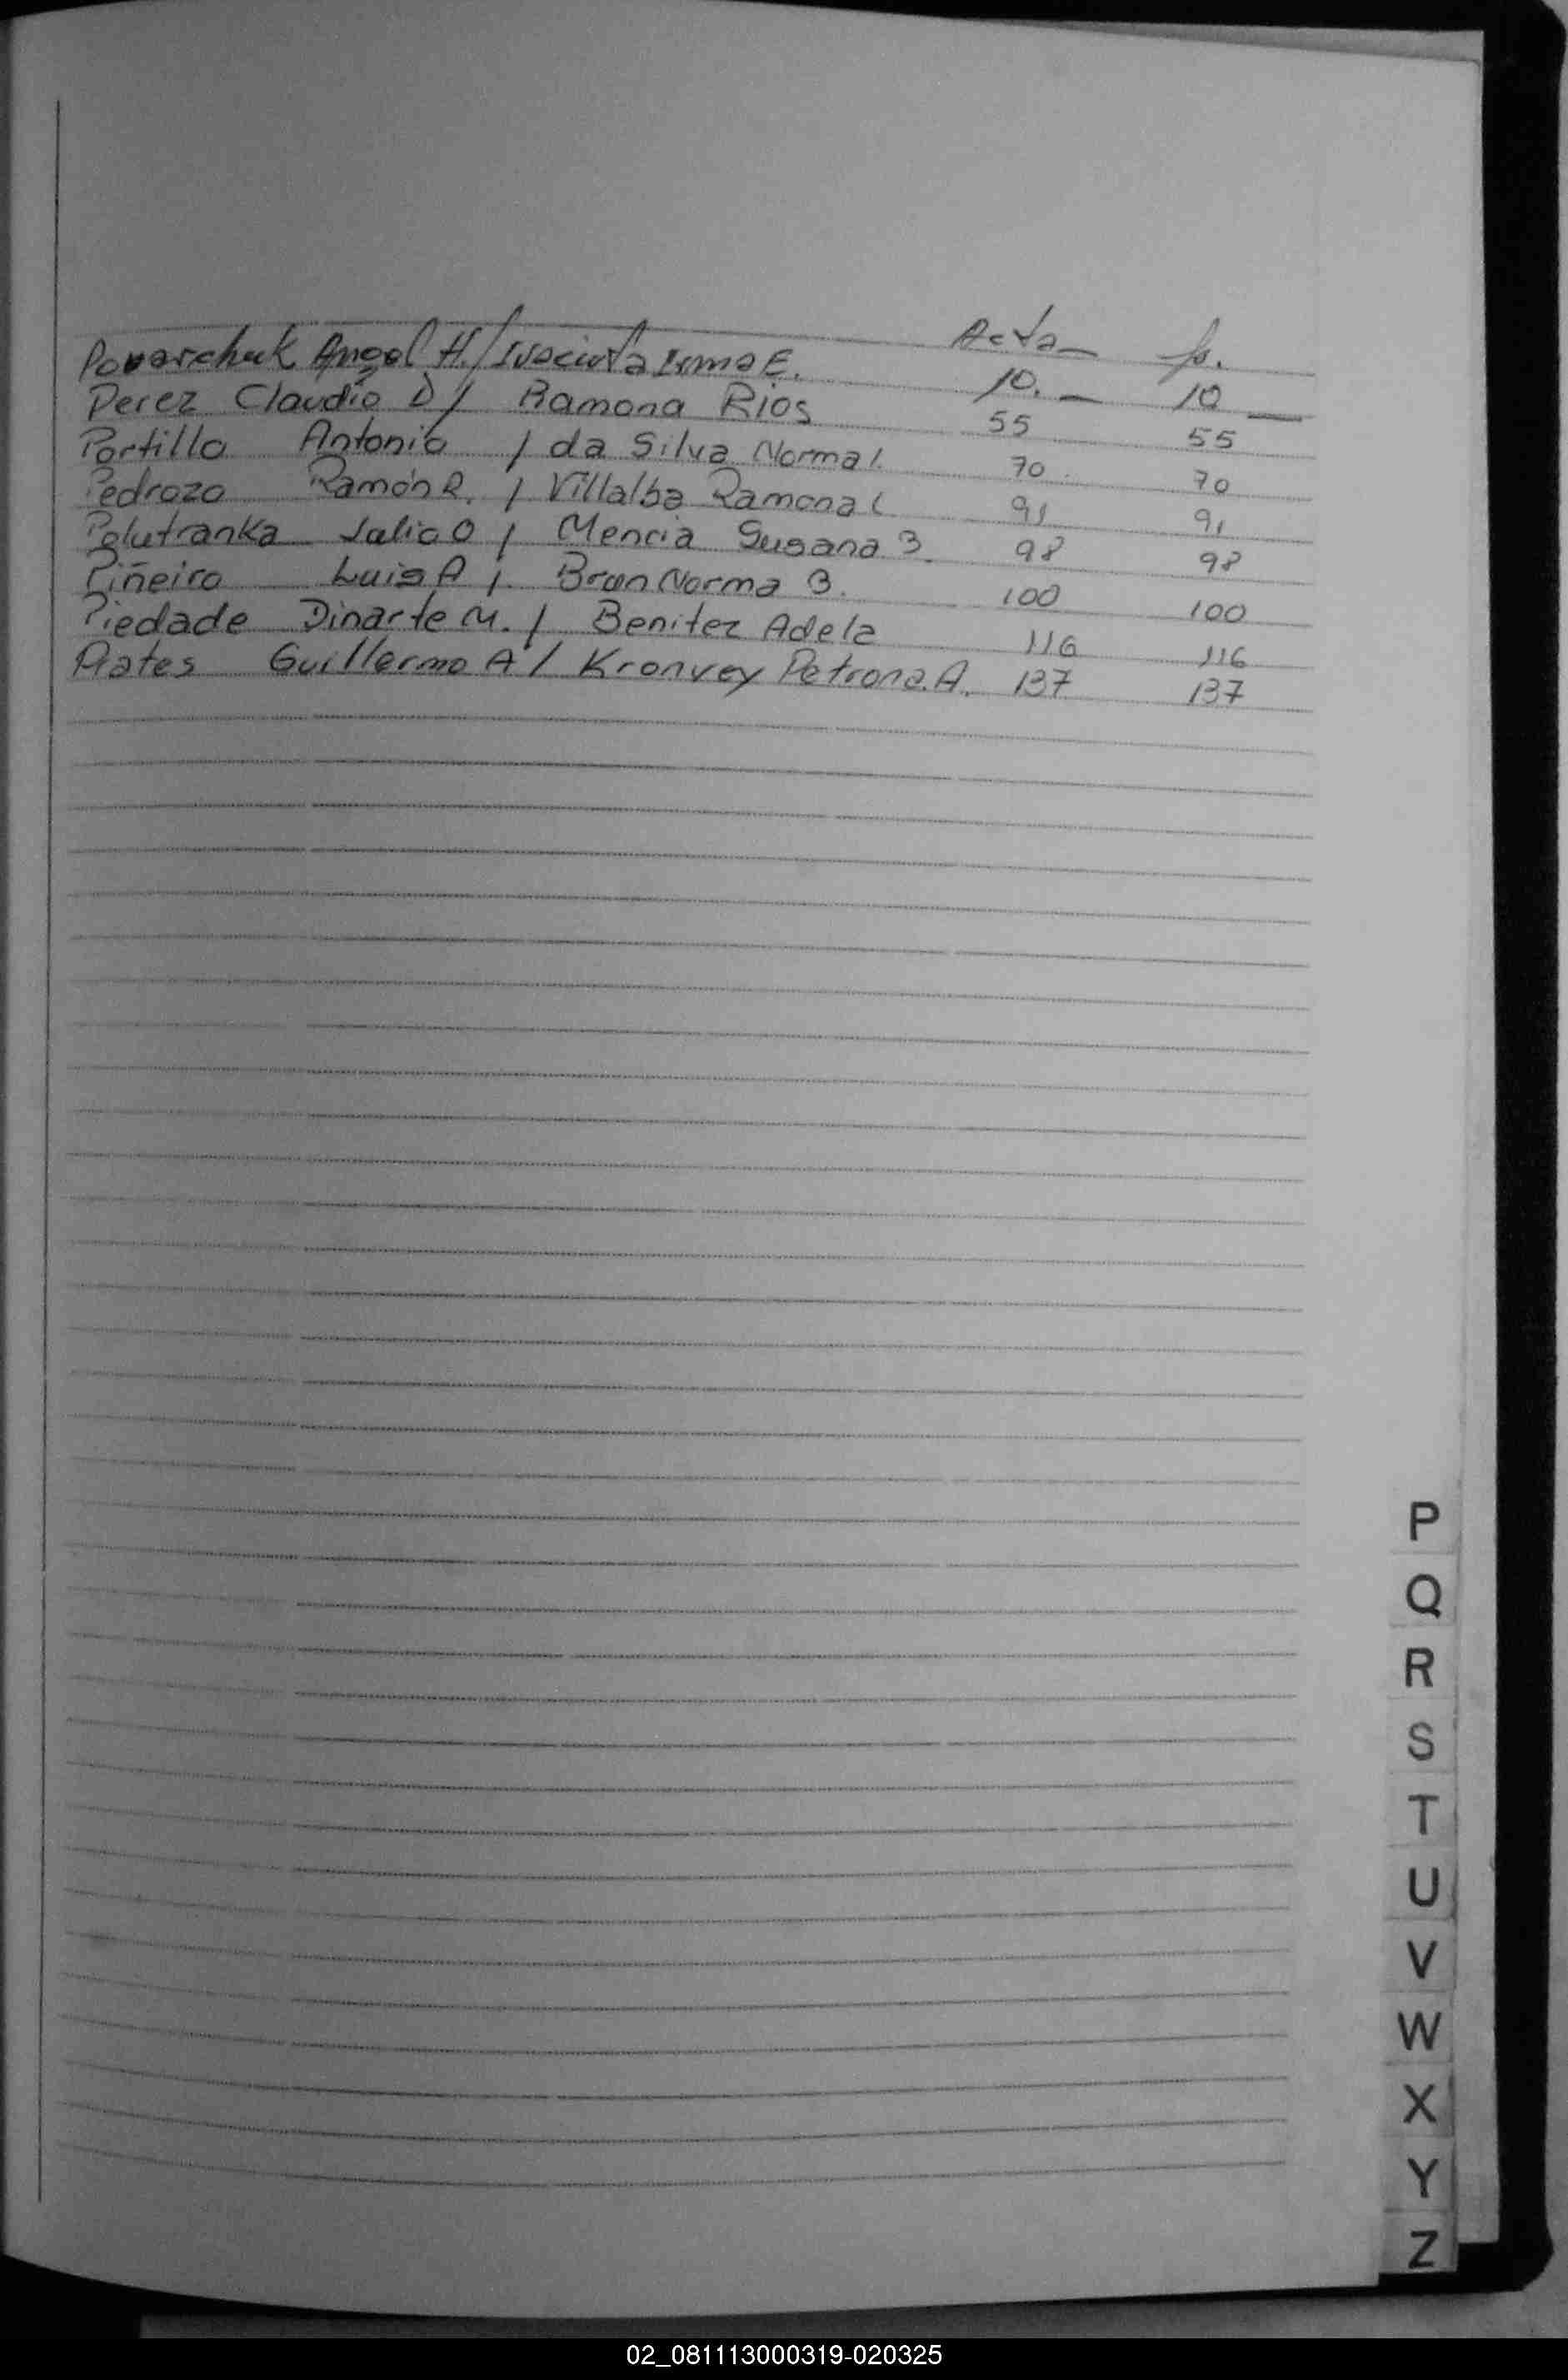 Acta fo.
Powarchuk Angel H. / Irma E. 10. 10
Perez Claudio D / Ramona Rios 55 55
Portillo Antonio / da Silva Norma I. 70 70
Pedrozo Ramón R. / Villalba Ramona C 91 91
Polutranka Julio O / Mencia Susana B. 98 98
Piñeiro Luis A / Bron Norma B. 100 100
Piedade Dinarte M. / Benitez Adela 116 116
Prates Guillermo A / Kronvey Petrona A. 137 137
P
Q
R
S
T
U
V
W
X
Y
Z
02_081113000319-020325